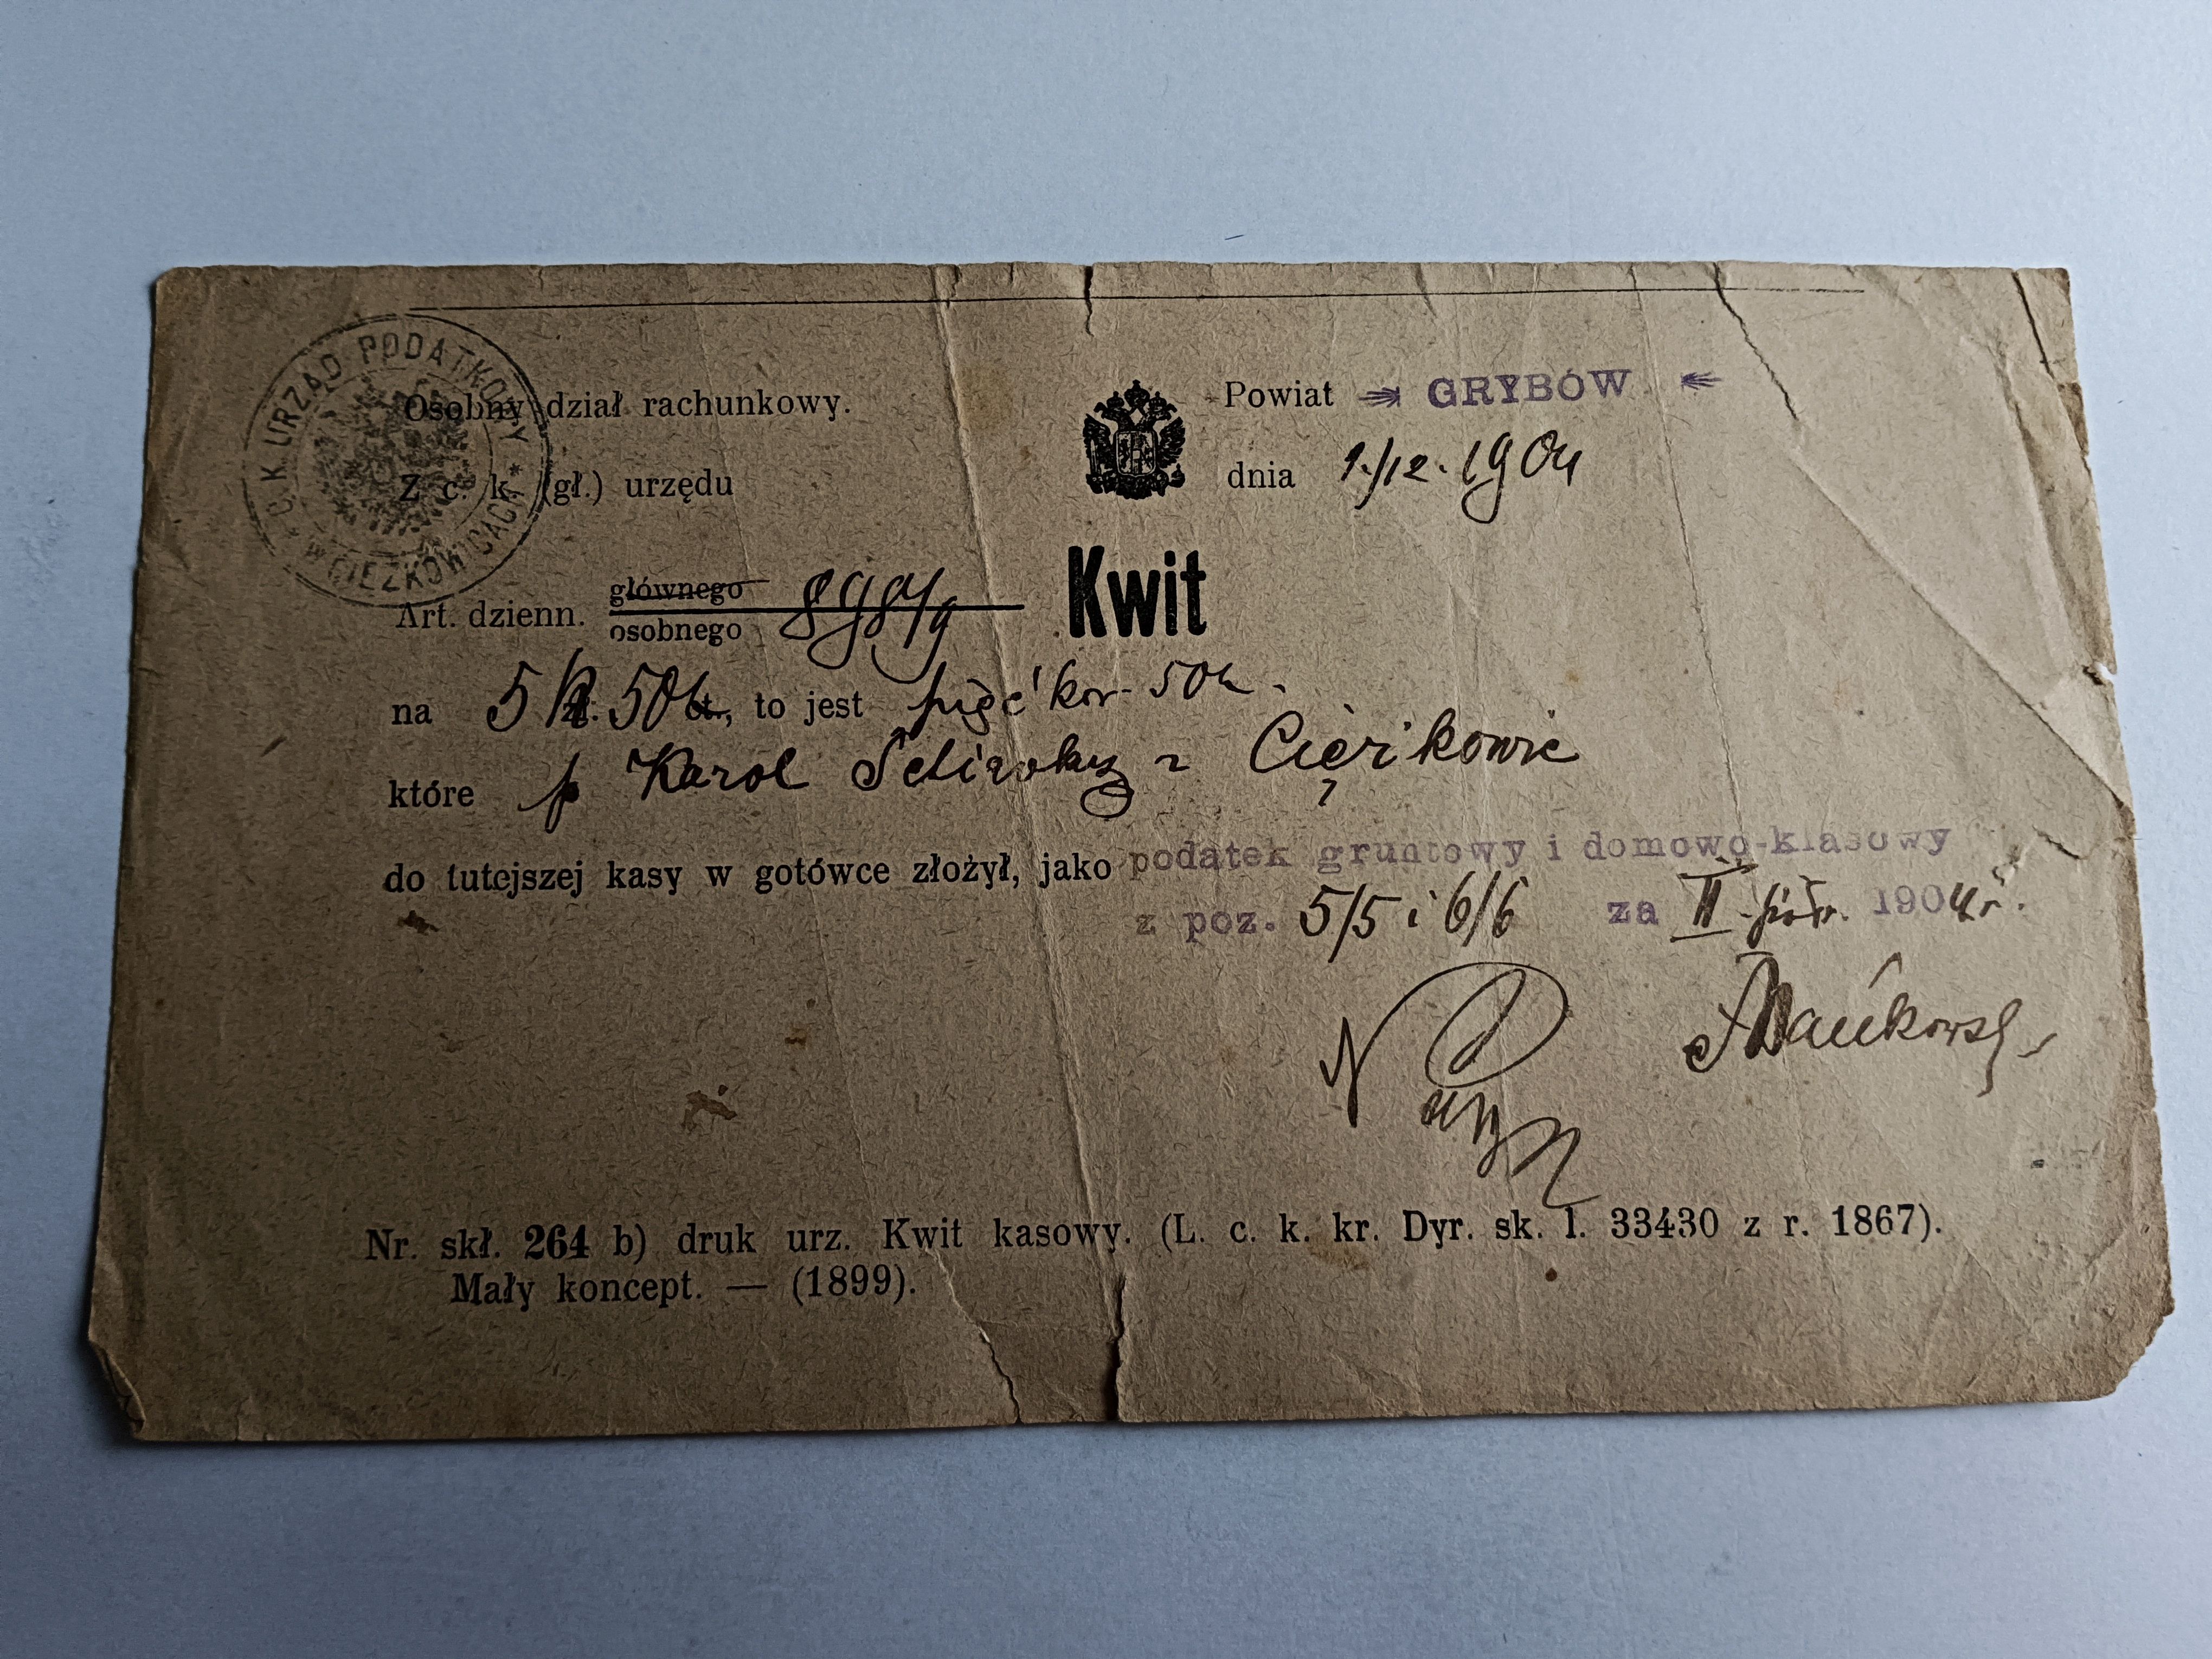 C. K. URZĄD PODATKOWY * W CIĘŻKOWICACH *
Osobny dział rachunkowy.
Powiat GRYBÓW
Z c. k. (gł.) urzędu
dnia 1./12. 1904
Art. dzienn. głównego
osobnego
Kwit
na 5 K 50 ct., to jest pięć kor. 50 h.
które p Karol z Ciężkowic
do tutejszej kasy w gotówce złożył, jako podatek gruntowy i domowo-klasowy
z poz. 5/5 i 6/6 za II półr. 1904 r.
Nr. skł. 264 b) druk urz. Kwit kasowy. (L. c. k. kr. Dyr. sk. l. 33430 z r. 1867).
Mały koncept. — (1899).